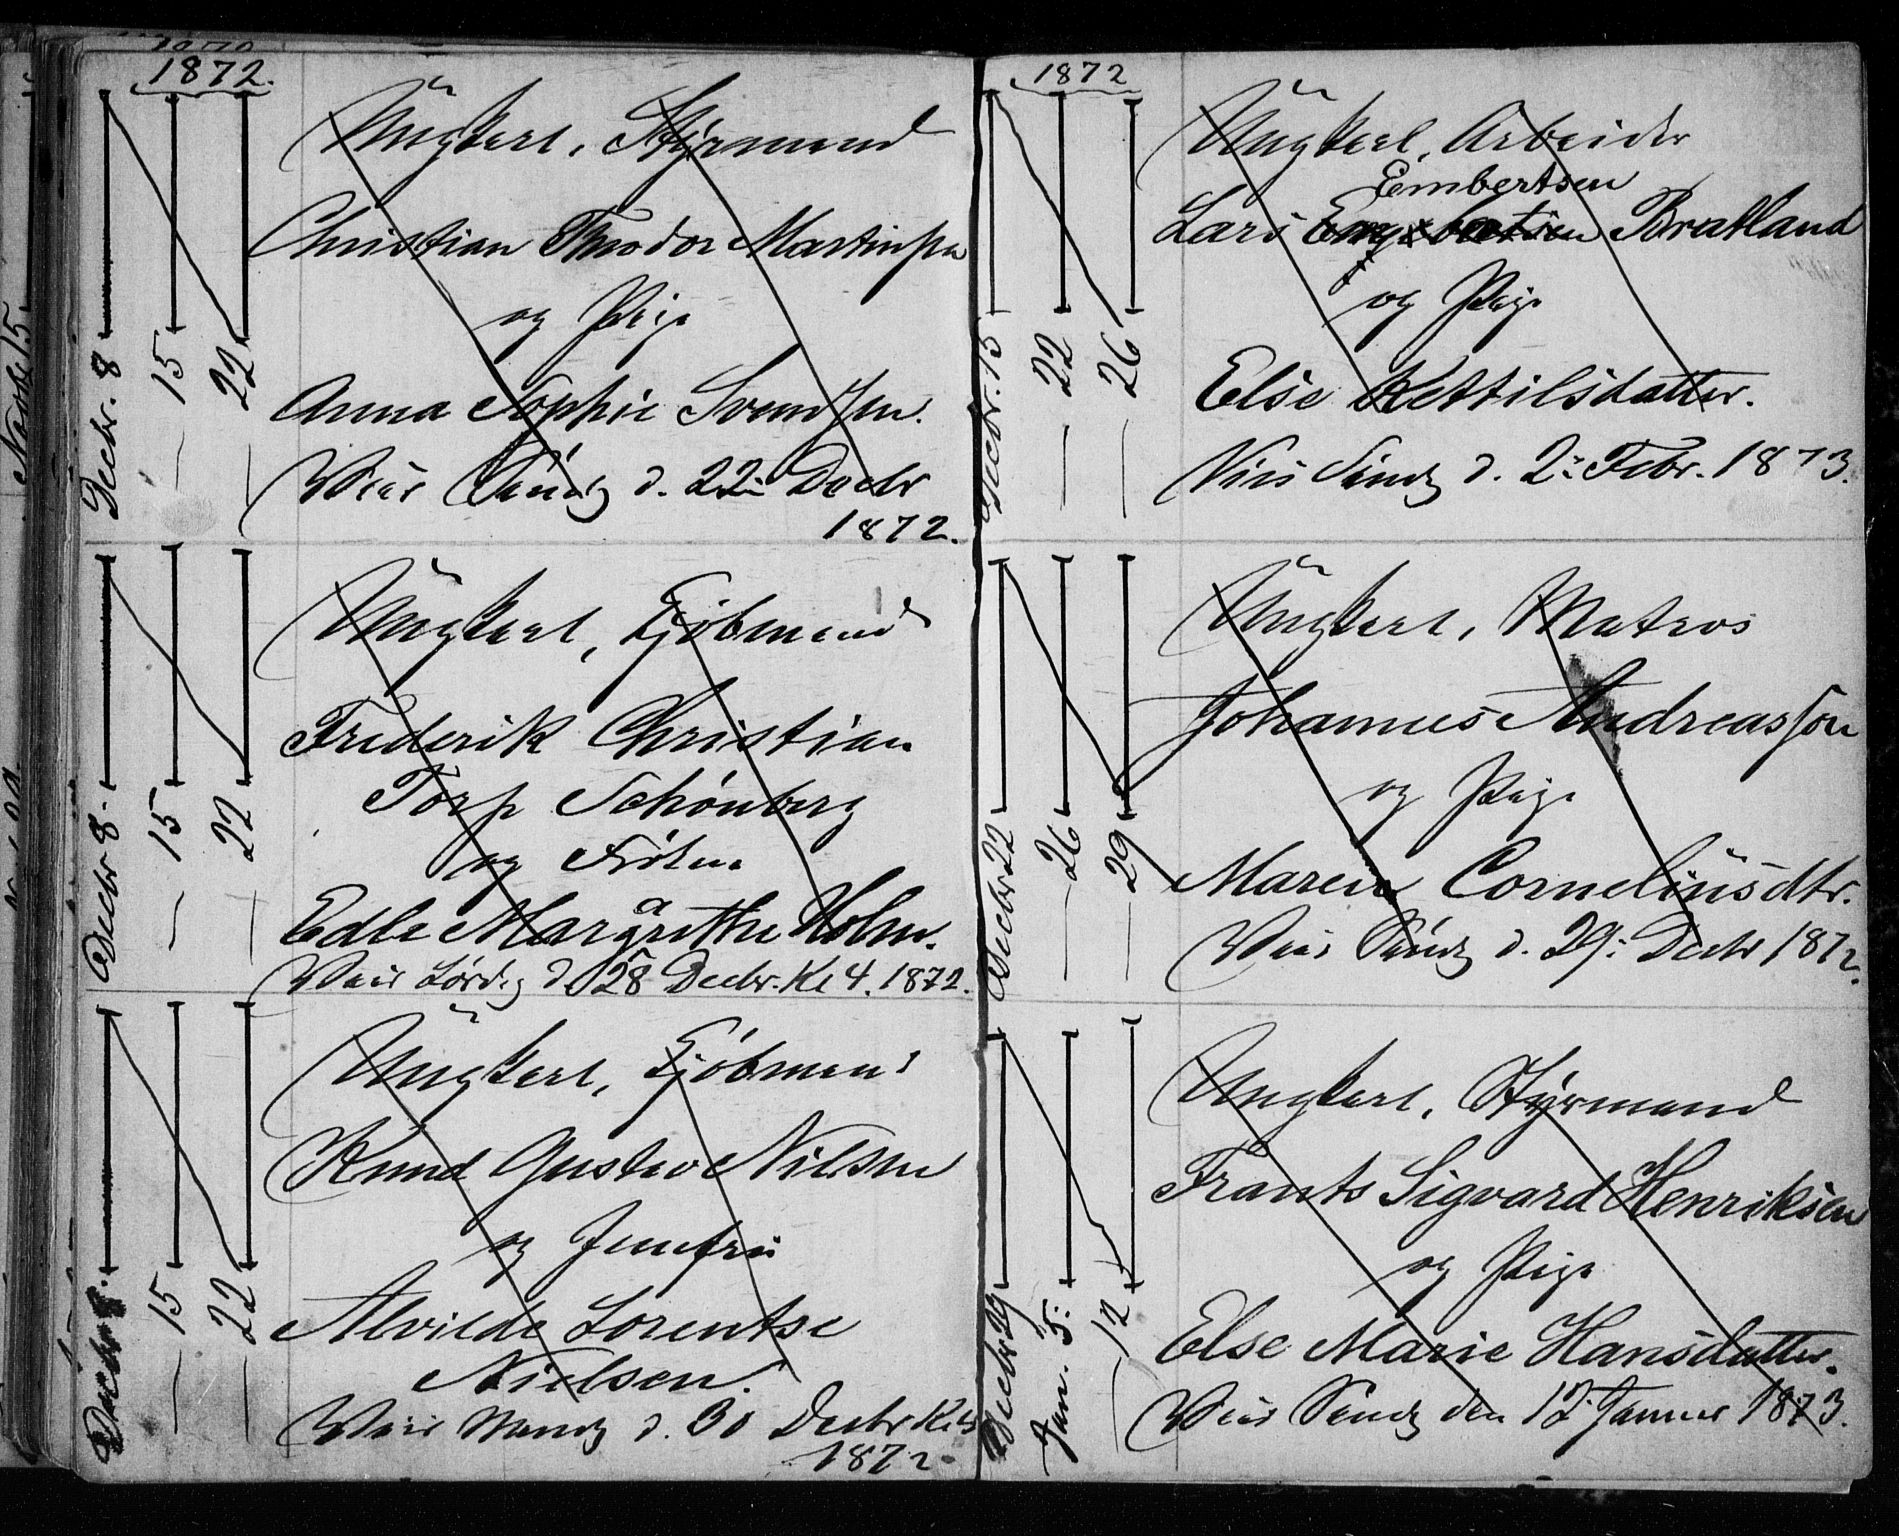 1872.
Decbr. 8
— 15
— 22
Ungkarl, Styrmand
Christian Theodor Martinsen
og Pige
Anna Sophie Svendsen.
Viet Søndg d. 22: Decbr
1872.
Decbr 8.
— 15
— 22
Ungkarl, Kjøbmand
Frederik Christian
Torp Schönberg
og Frøken
Edle Margarethe Holm.
Viet Lørdg d 28 Decbr. Kl 4. 1872.
Decbr 8.
— 15
— 22
Ungkarl, Kjøbmand
Knud Gustav Nielsen
og Jomfru
Alvilde Lorentse
Nielsen.
Viet Mandg d. 30 Decbr Kl 5
1872.
1872
Decbr. 15
— 22
— 26
Ungkarl, Arbeider
Embertsen
Lars Bratland
og Pige
Else Kettilsdatter.
Viet Søndg d. 2: Febr. 1873.
Decbr 22
— 26
— 29
Ungkarl, Matros
Johannes Andreassen
og Pige
Maren Corneliusdtr.
Viet Søndg d. 29: Decbr 1872.
Decbr 29
Jan. 5:
— 12
Ungkarl, Styrmand
Frants Sigvard Henriksen
og Pige
Else Marie Hansdatter.
Viet Søndg den 12 Januar 1873.